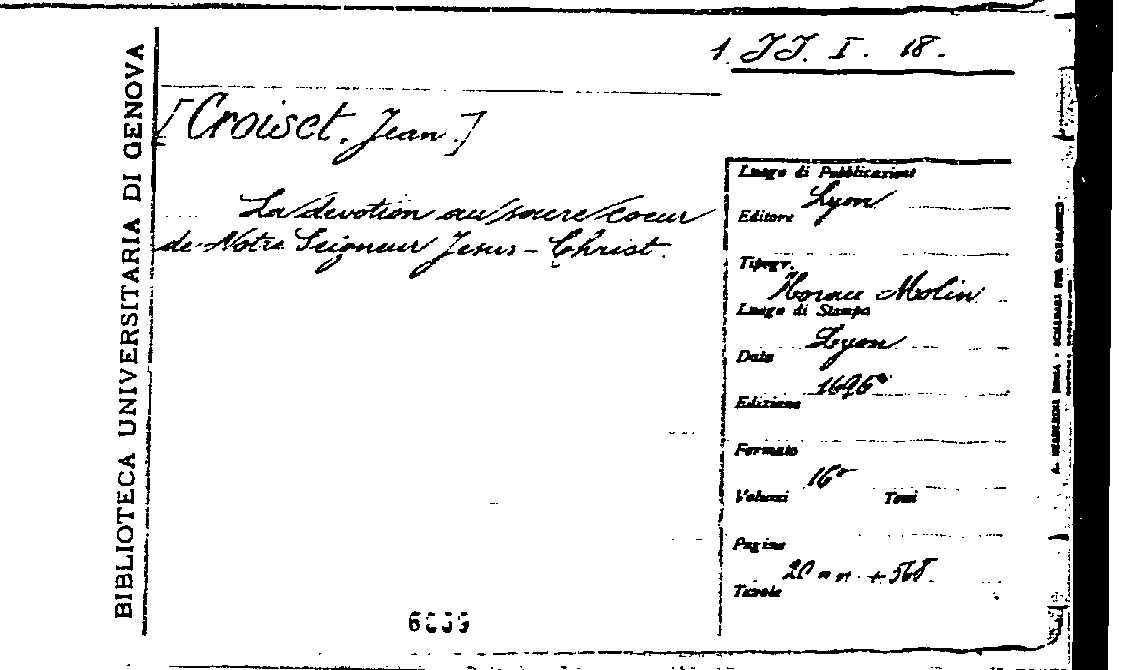 1 JJ. I. 18.
BIBLIOTECA UNIVERSITARIA DI GENOVA
[Croiset, Jean.]
La devotion au sacre coeur
de Notre Seigneur Jesus-Christ.
Luogo di Pubblicazione
Lyon
Editore
Tipogr.
Horace Molin
Luogo di Stampa
Lyon
Data
Edizione
Formato
16°
Volumi Tomi
Pagine
20 nn. + 568.
Tavole